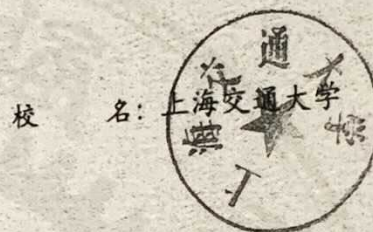 校 名：上海交通大学
上海交通大学